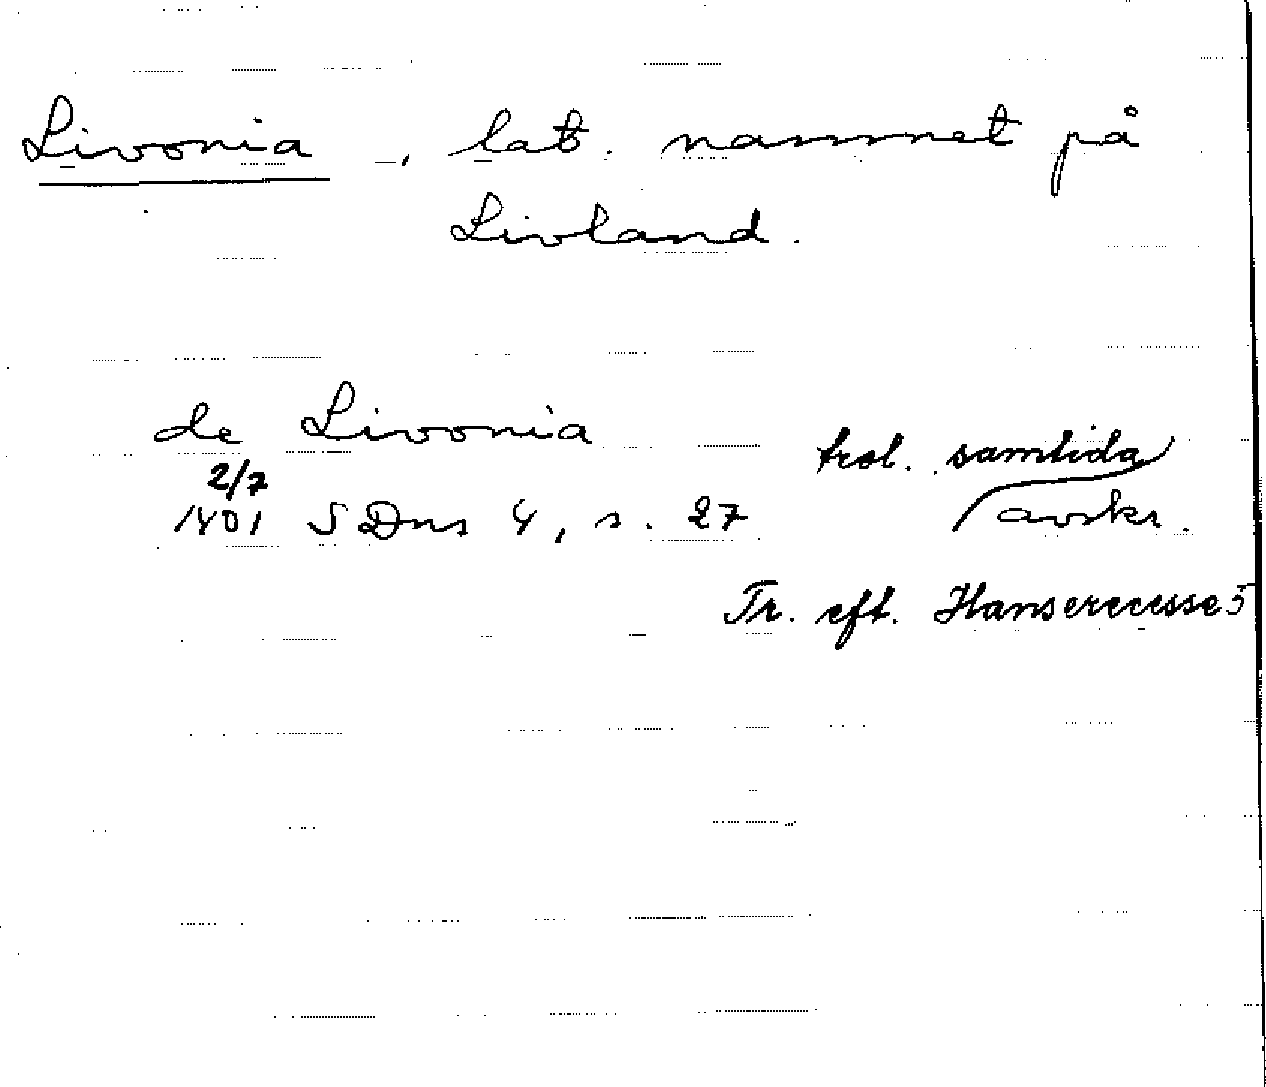 Livonia, lat. namnet på
Livland.
de Livonia
trol. samtida
2/7
1401 SDns 4, s. 27
avskr.
Tr. eft. Hanserecesse 5